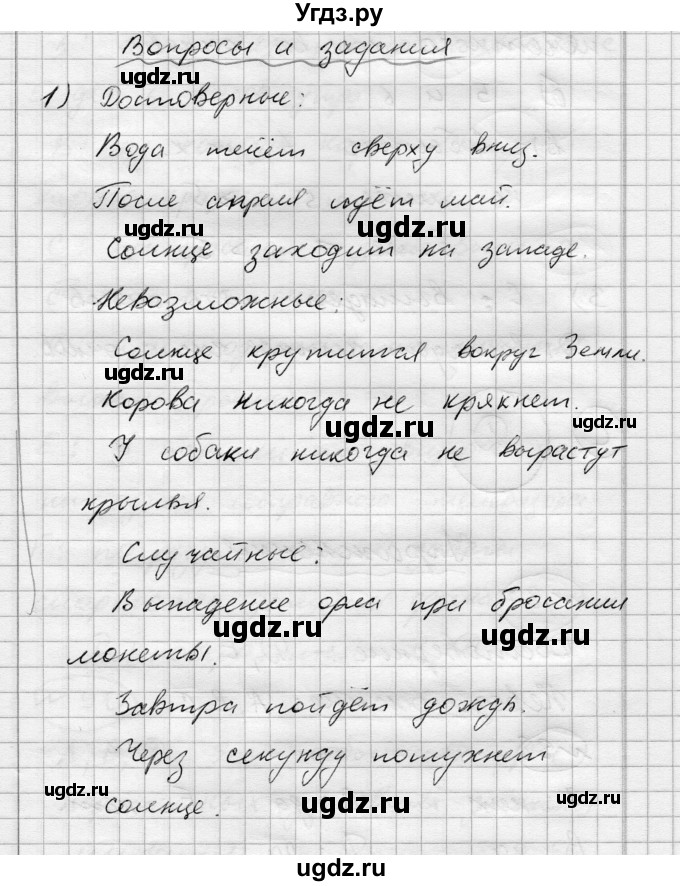 Угдз.ру
Вопросы и задания
ugdz.ru
1) Достоверные:
ugdz.ru
Вода течёт сверху вниз.
После апреля идёт май.
ugdz.ru ugdz.ru
Солнце заходит на западе.
Невозможные:
Солнце крутится вокруг Земли.
ugdz.ru
Корова никогда не крякнет.
ugdz.ru
У собаки никогда не вырастут
крылья.
ugdz.ru
Случайные:
Выпадение орла при бросании
ugdz.ru ugdz.ru
монеты.
Завтра пойдёт дождь.
Через секунду потухнет
ugdz.ru ugdz.ru ugdz.ru
солнце.
ugdz.ru